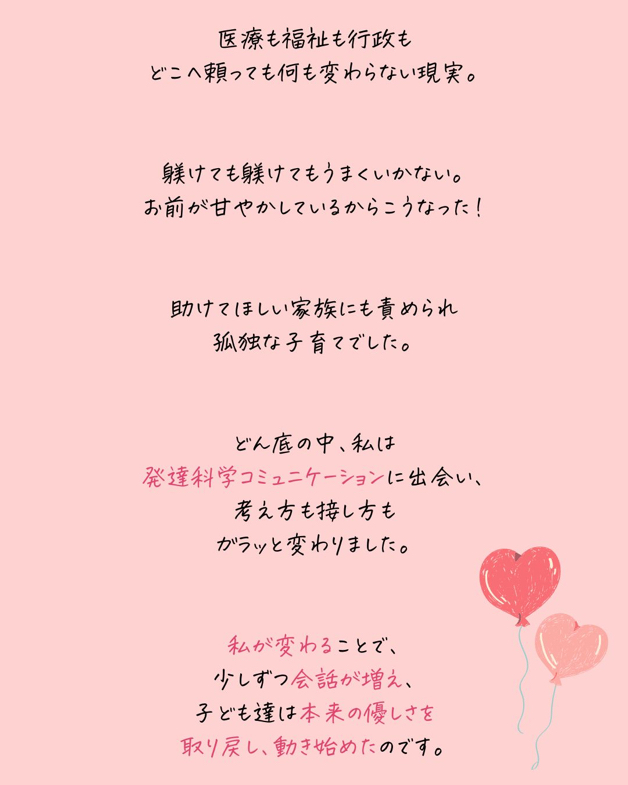 医療も福祉も行政も
どこへ頼っても何も変わらない現実。
躾けても躾けてもうまくいかない。
お前が甘やかしているからこうなった！
助けてほしい家族にも責められ
孤独な子育てでした。
どん底の中、私は
発達科学コミュニケーションに出会い、
考え方も接し方も
ガラッと変わりました。
私が変わることで、
少しずつ会話が増え、
子ども達は本来の優しさを
取り戻し、動き始めたのです。